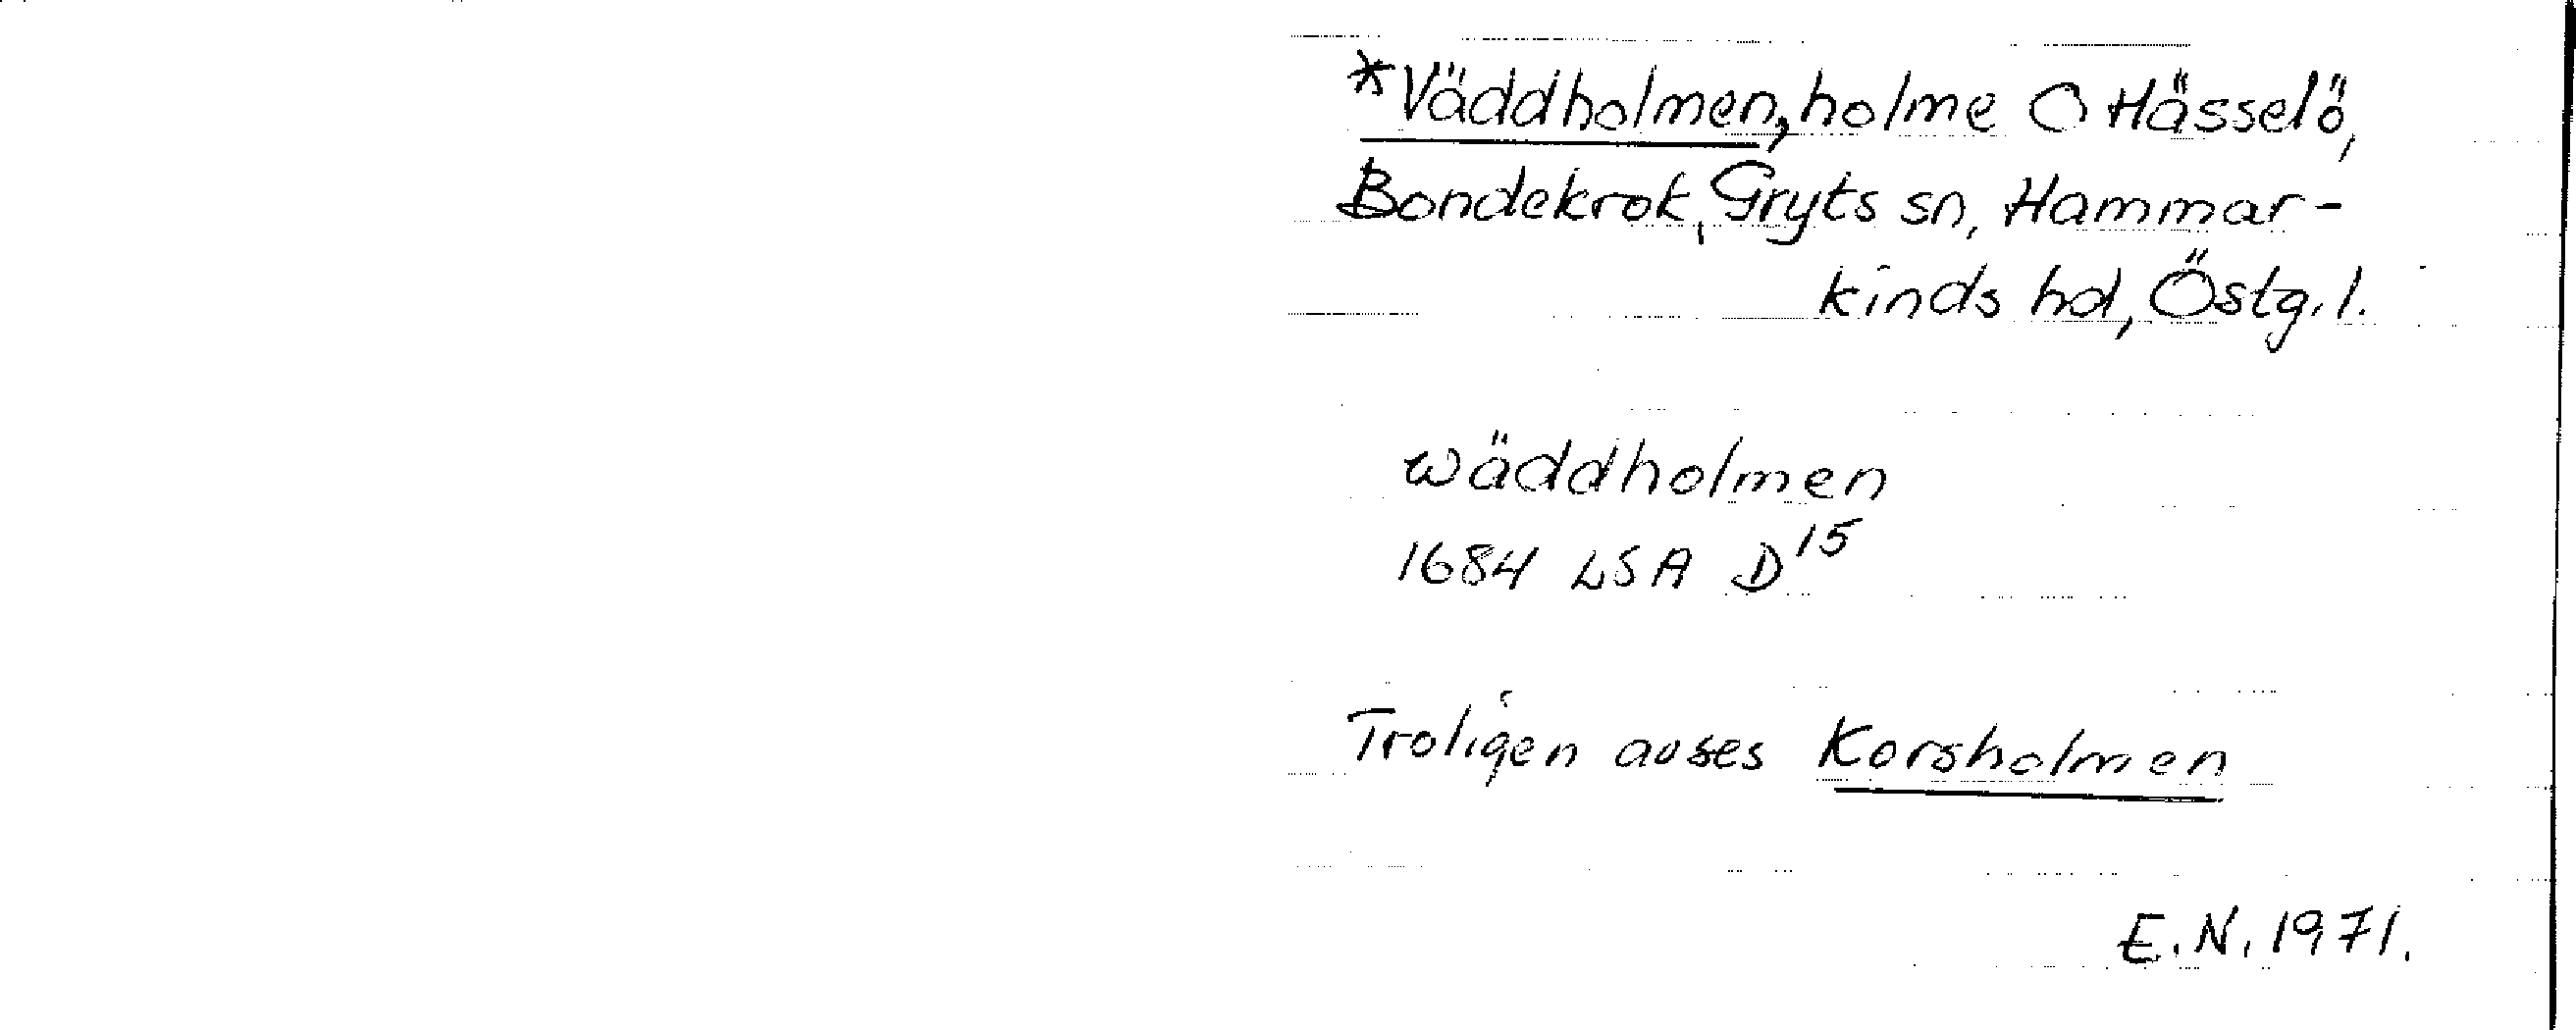 *Väddholmen, holme O Hässelö,
Bondekrok, Gryts sn, Hammar-
kinds hd, Östg. l.
wäddholmen
1684 LSA D15
Troligen avses Korsholmen
E.N. 1971.